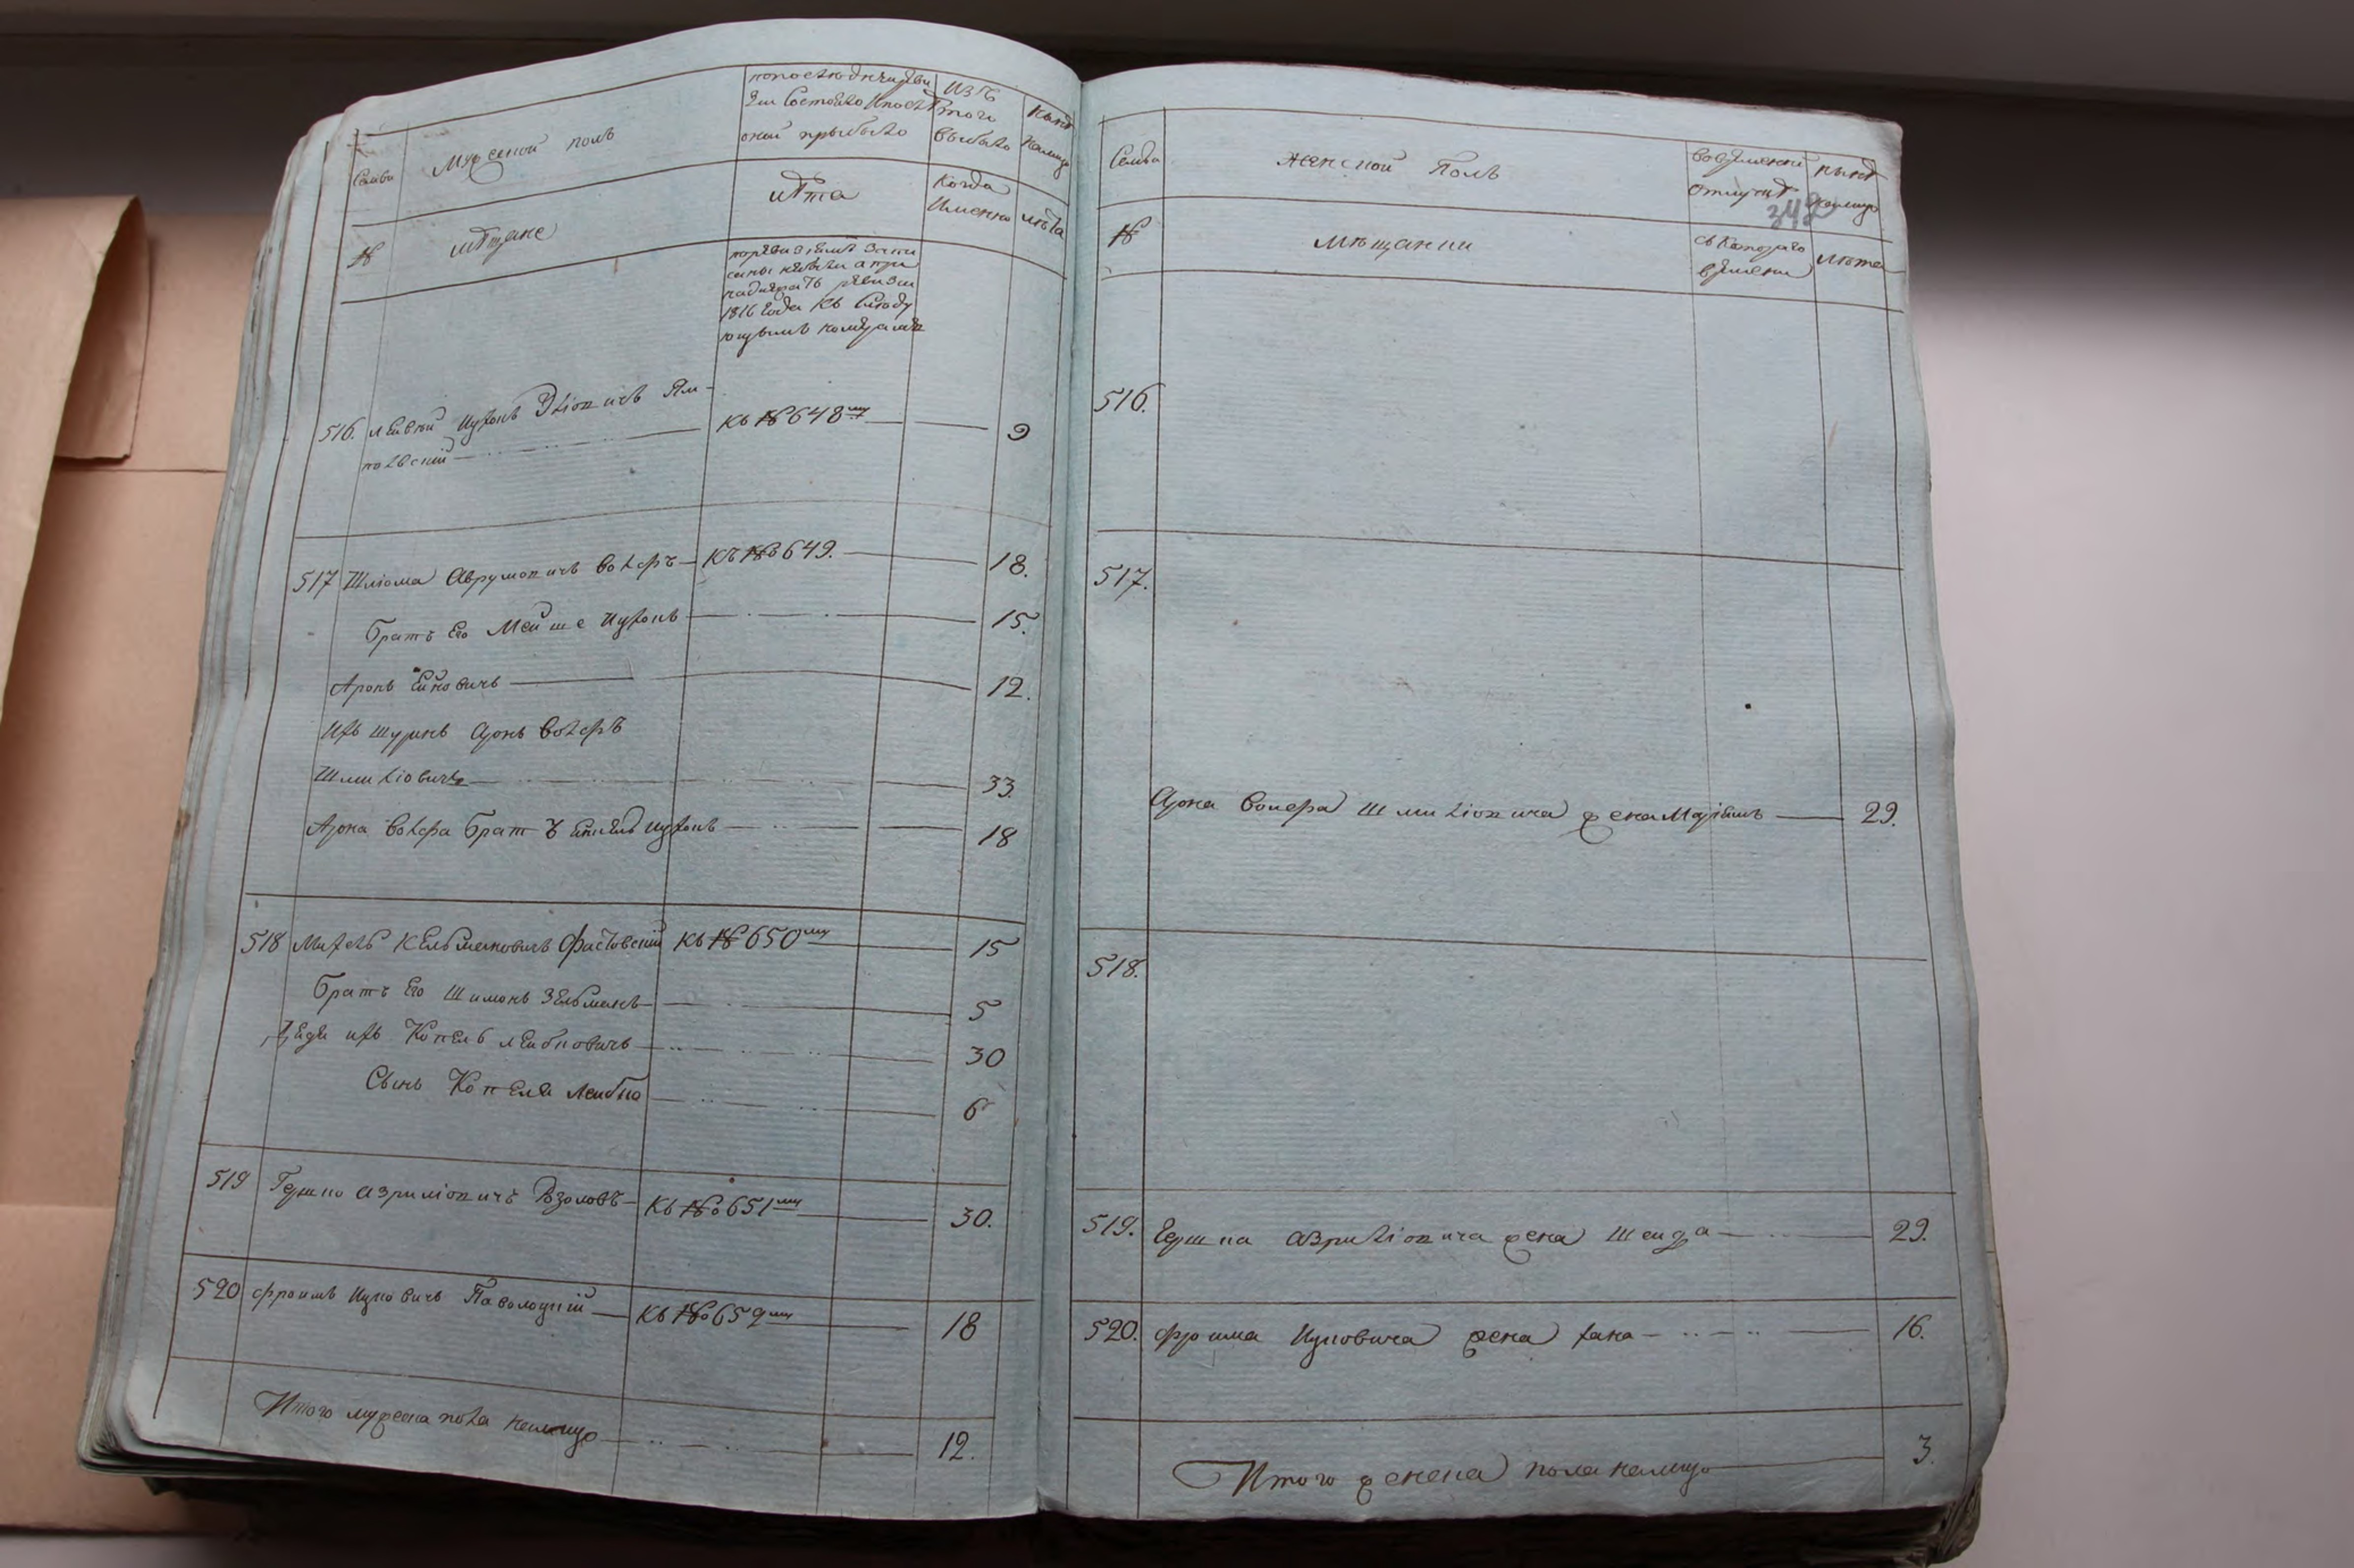 Семьи
Мужеской полъ
по последней реви
зіи состояло и после
оной прыбыло
Изъ
того
выбыло
ныне
налицо
№
мѣщане
лѣта
Когда
Именно
лѣта
по ревизіямъ запи
саны небыли а при
ревизіи
1816 Года Къ Следу
ющымъ номерамъ
516. Лейвкй Ицхокъ Эліовичъ Ям-
польскій
Къ № 648му
9
517 Шліома Аврумовичъ Волеръ
Къ № 649.
18.
Братъ Его Мейше Ицхокъ
15.
Аронъ Ейновичъ
12.
Ихъ шуринъ Аронъ Волеръ
Шмиліовичъ
33.
Арона Волера Братъ Ицхокъ
18
518 Михель Кельмановичъ Фастовскій
Къ № 650му
15
Братъ Его Шимонъ Зельманъ
5
Дядя ихъ Копель Лейбовичъ
30
Сынъ Копеля Лейбка
6
519 Гершко Азриліовичъ Козоловъ
Къ № 651му
30.
520 Фроимъ Ицковичъ Паволоцкій
Къ № 652му
18
Итого мужеска пола налицо
12.
Семьи
женской Полъ
во временной
отлучке
ныне
налицо
342
№
Мѣщанки
съ Котораго
времени
лѣта
516.
517.
Арона Волера Шмиліовича жена Маріемъ
29.
518.
519. Гершка Азриліовича жена Шейва
29.
520. Фроима Ицковича жена Хана
16.
Итого женска пола налицо
3.